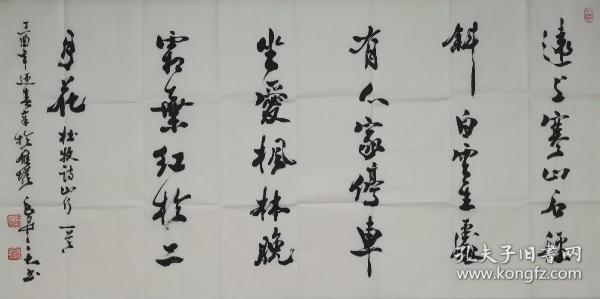 遠上寒山石徑
斜白雲生處
有人家停車
坐愛楓林晚
霜葉紅於二
月花 杜牧詩山行一首
丁酉年迎春
孔夫子旧书网
www.kongfz.com